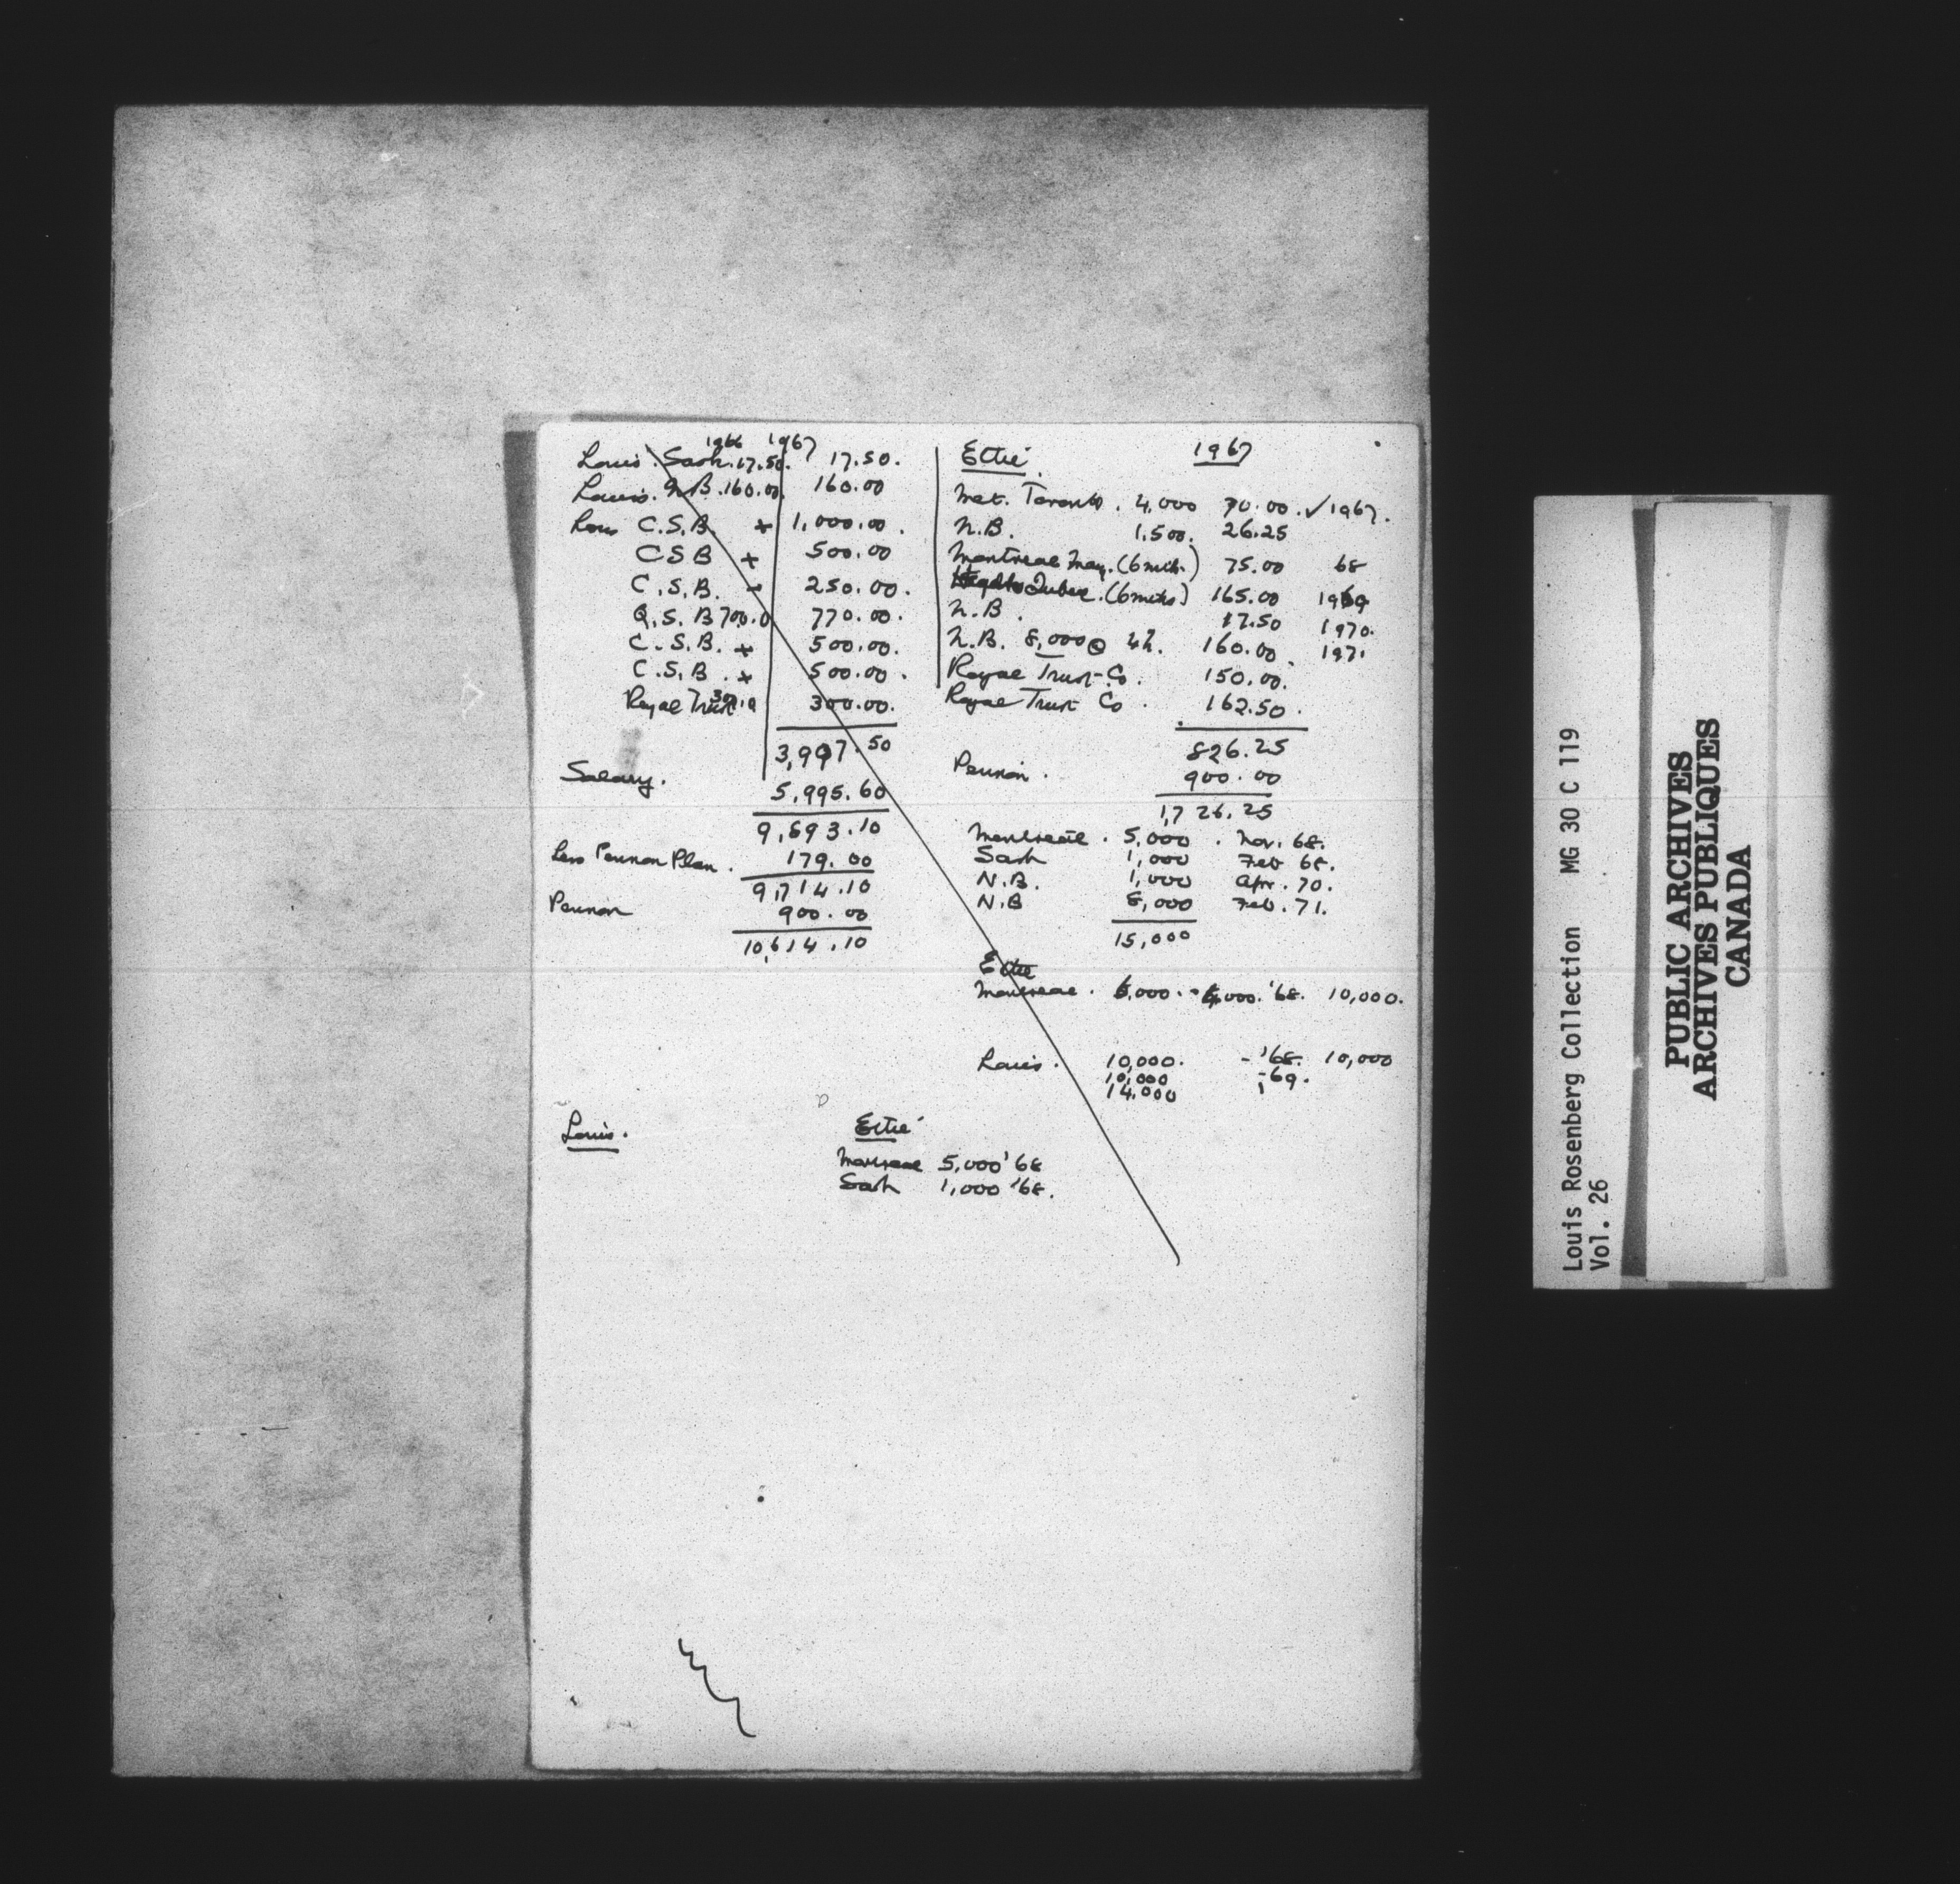 1966 1967
Louis. Sask. 17.50. 17.50.
Louis. N.B. 160.00. 160.00
Louis C.S.B. + 1,000.00.
CSB + 500.00
C.S.B. - 250.00.
Q.S.B 700.0 770.00.
C.S.B. + 500.00.
C.S.B. + 500.00.
Royal Trust 300.00.
3,997.50
Salary. 5,995.60
9,893.10
Less Pension Plan. 179.00
9,714.10
Pension 900.00
10,614.10
Ettie 1967
Met. Toronto. 4,000 70.00. ✓1967.
N.B. 1,500. 26.25
Montreal May. (6 mths.) 75.00 68
Quebec. (6 mths) 165.00 1969
N.B. 17.50 1970.
N.B. 8,000 @ 4%. 160.00 1971
Royal Trust Co. 150.00.
Royal Trust Co. 162.50.
826.25
Pension. 900.00
1,726.25
Montreal. 5,000. Nov. 68.
Sask 1,000 Feb 68.
N.B. 1,000 Apr. 70.
N.B 8,000 Feb. 71.
15,000
Ettie
Montreal. 5,000. - 5,000. '68. 10,000.
Louis. 10,000. - '68. 10,000
10,000 - 69.
14,000
Louis.
Ettie
Montreal 5,000 '68
Sask 1,000 '68.
Louis Rosenberg Collection MG 30 C 119
Vol. 26
PUBLIC ARCHIVES
ARCHIVES PUBLIQUES
CANADA